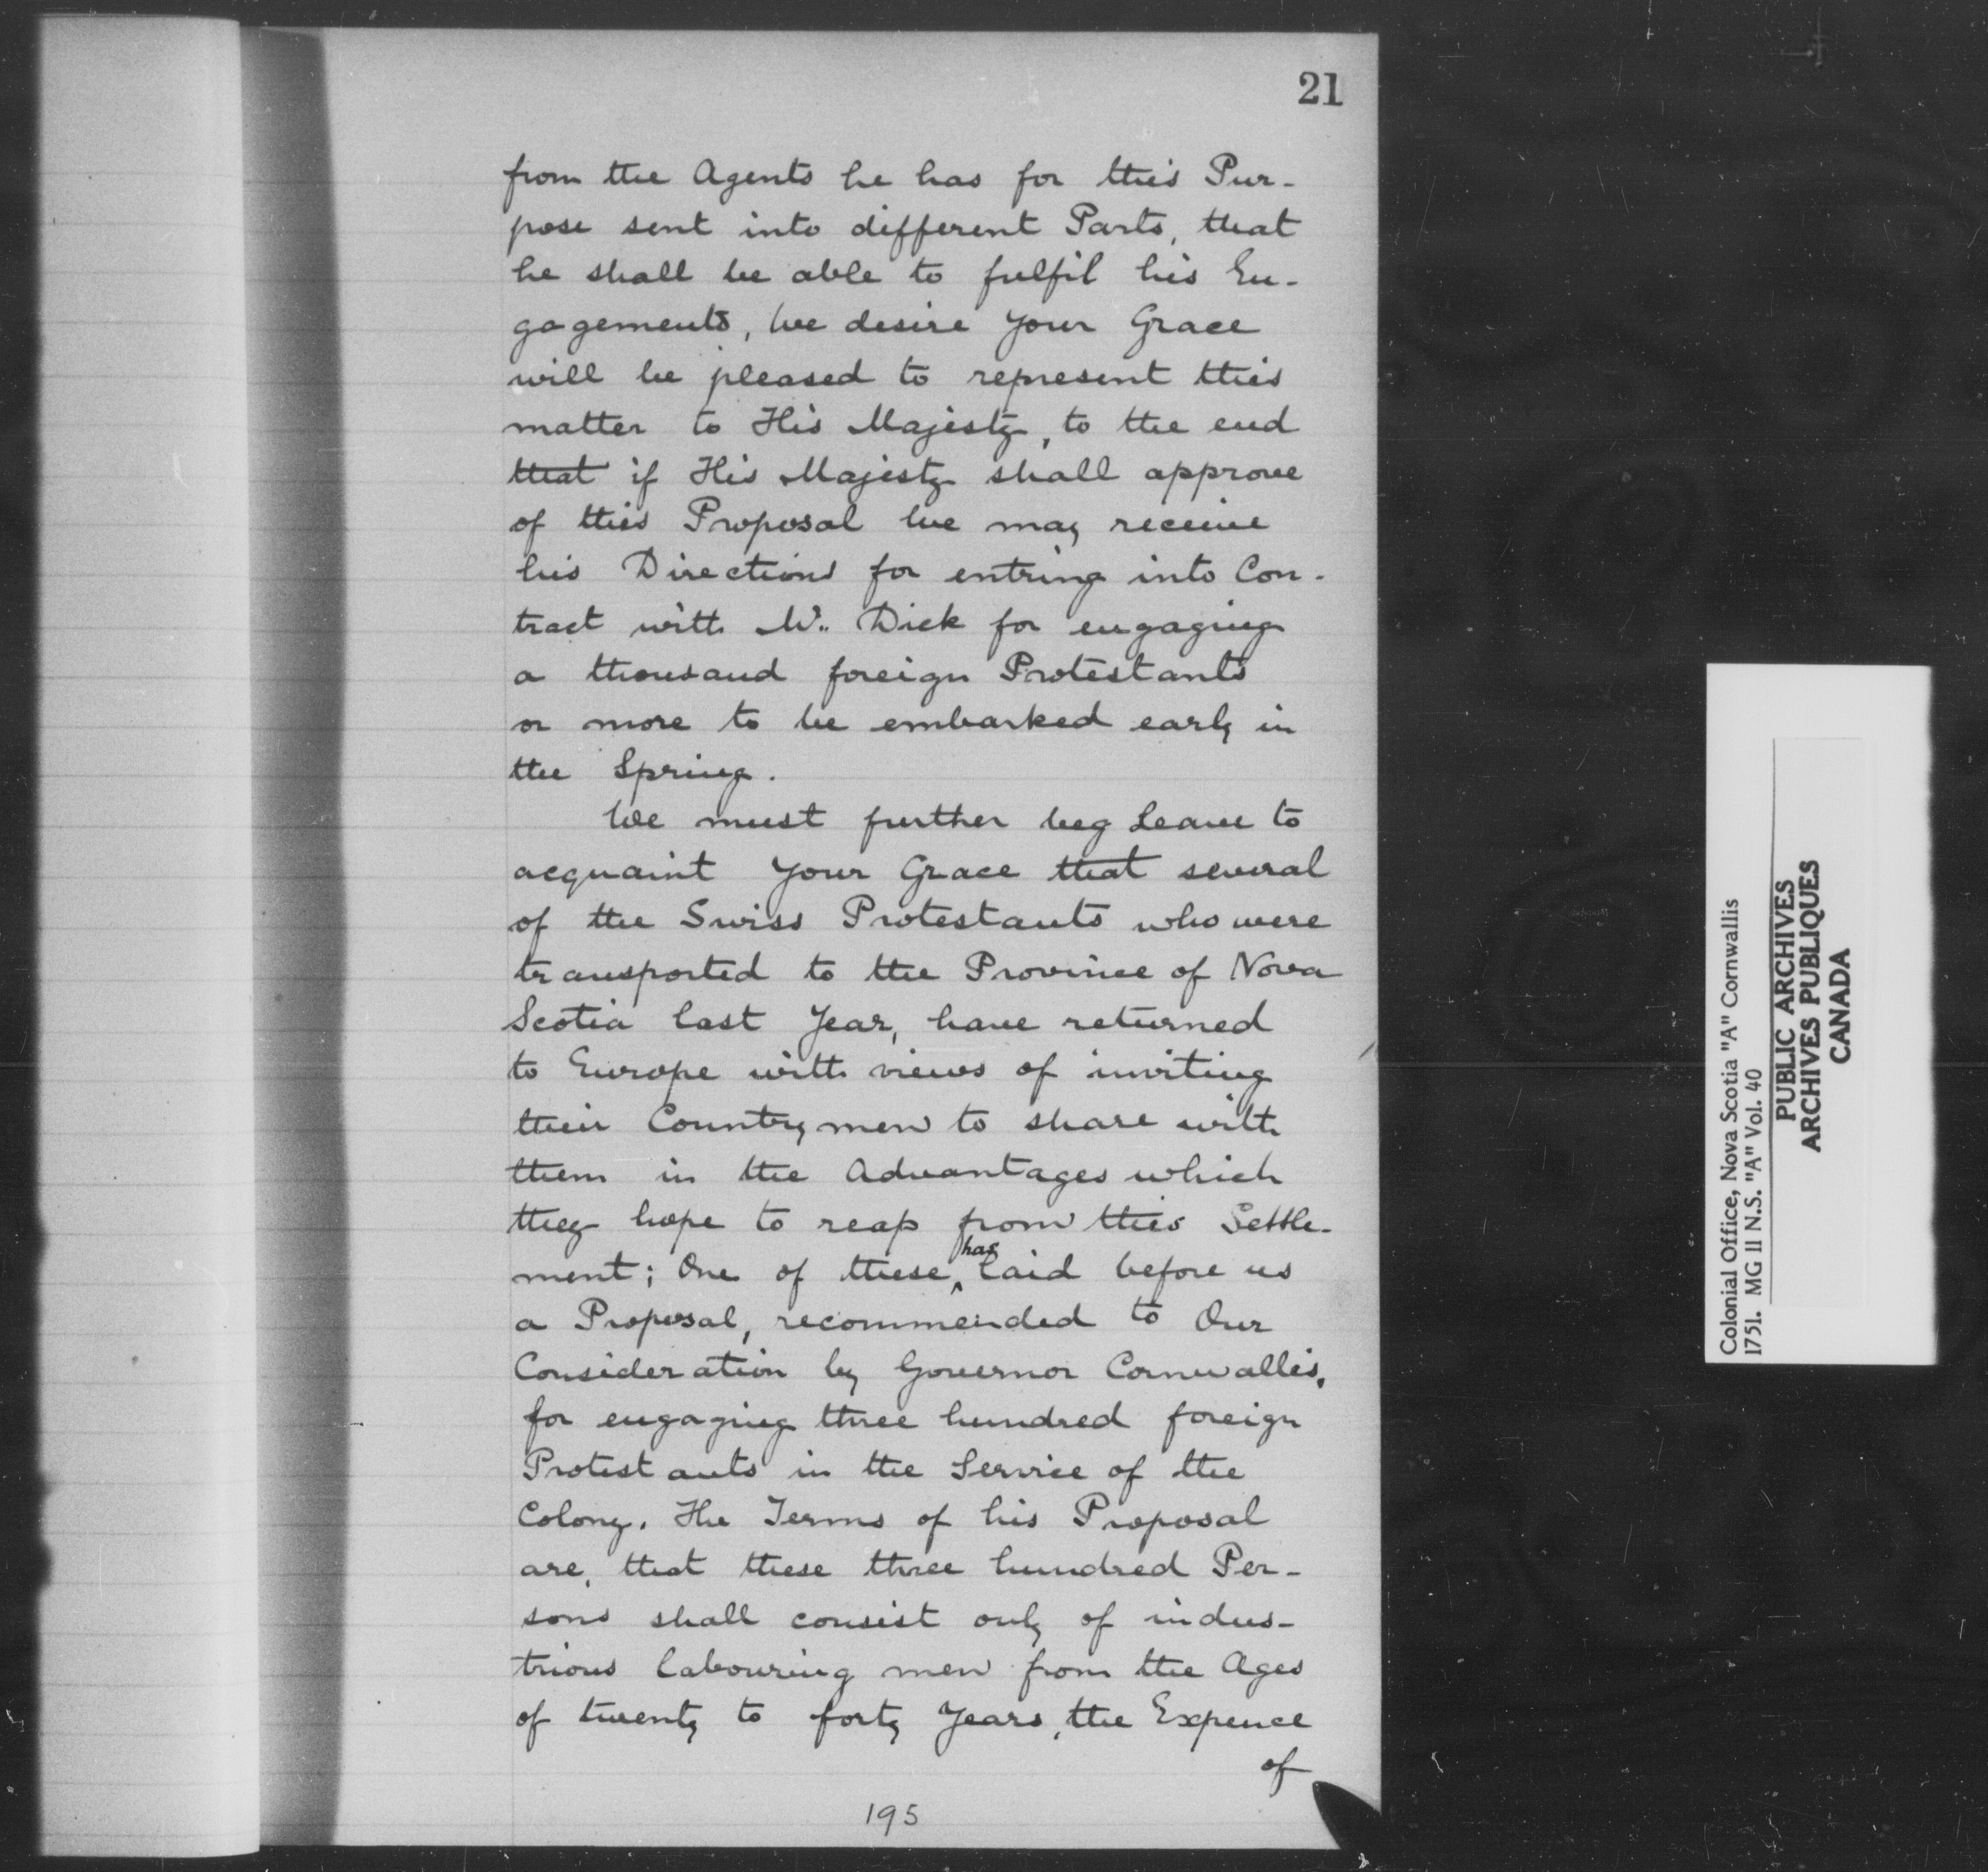 21
from the Agents he has for this Pur-
pose sent into different Parts, that
he shall be able to fulfil his En-
gagements, We desire Your Grace
will be pleased to represent this
matter to His Majesty, to the end
that if His Majesty shall approve
of this Proposal We may receive
his Directions for entring into Con-
tract with Mr. Dick for engaging
a thousand foreign Protestants
or more to be embarked early in
the Spring.
We must further beg Leave to
acquaint Your Grace that several
of the Swiss Protestants who were
transported to the Province of Nova
Scotia last Year, have returned
to Europe with views of inviting
their Countrymen to share with
them in the Advantages which
they hope to reap from this Settle-
ment; One of these, has laid before us
a Proposal, recommended to Our
Consideration by Governor Cornwallis,
for engaging three hundred foreign
Protestants in the Service of the
Colony. The Terms of his Proposal
are, that these three hundred Per-
sons shall consist only of indus-
trious labouring men from the Ages
of twenty to forty Years, the Expence
of
195
Colonial Office, Nova Scotia "A" Cornwallis
1751. MG 11 N.S. "A" Vol. 40
PUBLIC ARCHIVES
ARCHIVES PUBLIQUES
CANADA